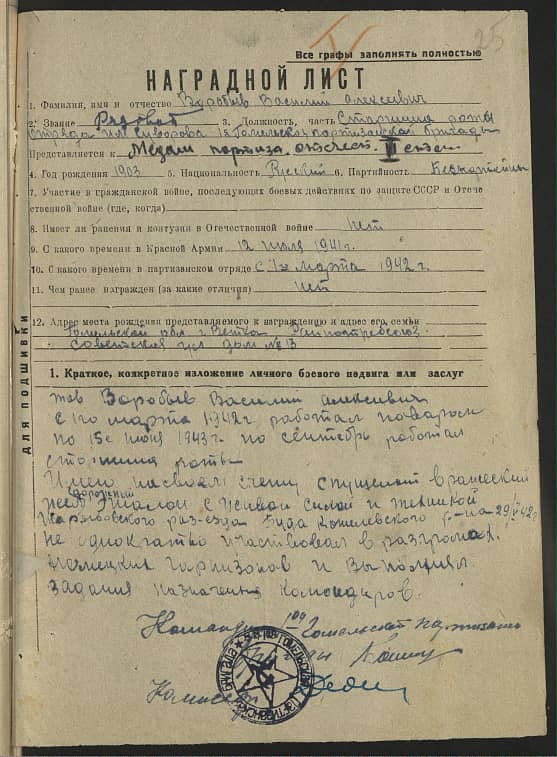 25
Все графы заполнять полностью
НАГРАДНОЙ ЛИСТ
1. Фамилия, имя и отчество Воробьёв Василий Алексеевич
2. Звание Рядовой 3. Должность, часть Старшина роты
отряда им. Суворова 1й Гомельской партизанской бригады
Представляется к Медали партиза. отечест. II степ
4. Год рождения 1903 5. Национальность Русский 6. Партийность Безпартейны
7. Участие в гражданской войне, последующих боевых действиях по защите СССР и Отече
ственной войне (где, когда)
8. Имеет ли ранения и контузии в Отечественной войне нет
9. С какого времени в Красной Армии 12 июля 1941 г.
10. С какого времени в партизанском отряде с 1го марта 1942 г.
11. Чем ранее награжден (за какие отличия) нет
12. Адрес места рождения представляемого к награждению и адрес его семьи
Гомельской обл г. Ветка
Советская ул. дом № 13
ДЛЯ ПОДШИВКИ
1. Краткое, конкретное изложение личного боевого подвига или заслуг
тов Воробьёв Василий Алексеевич
с 1го марта 1942 г. работал поваром
по 15е июня 1943 г. по сентябрь работал
старшина роты
Имел на своём счету спущеный вражеский
железнодорожный эшалон с живой силой и техникой
раз-езда Буда Кошелевского
Не однократно участвовал в разгромах
немецких гарнизонов и выполнял
задания командиров.
Командир 1ой Гомельской партизанс
бригады
Комиссар